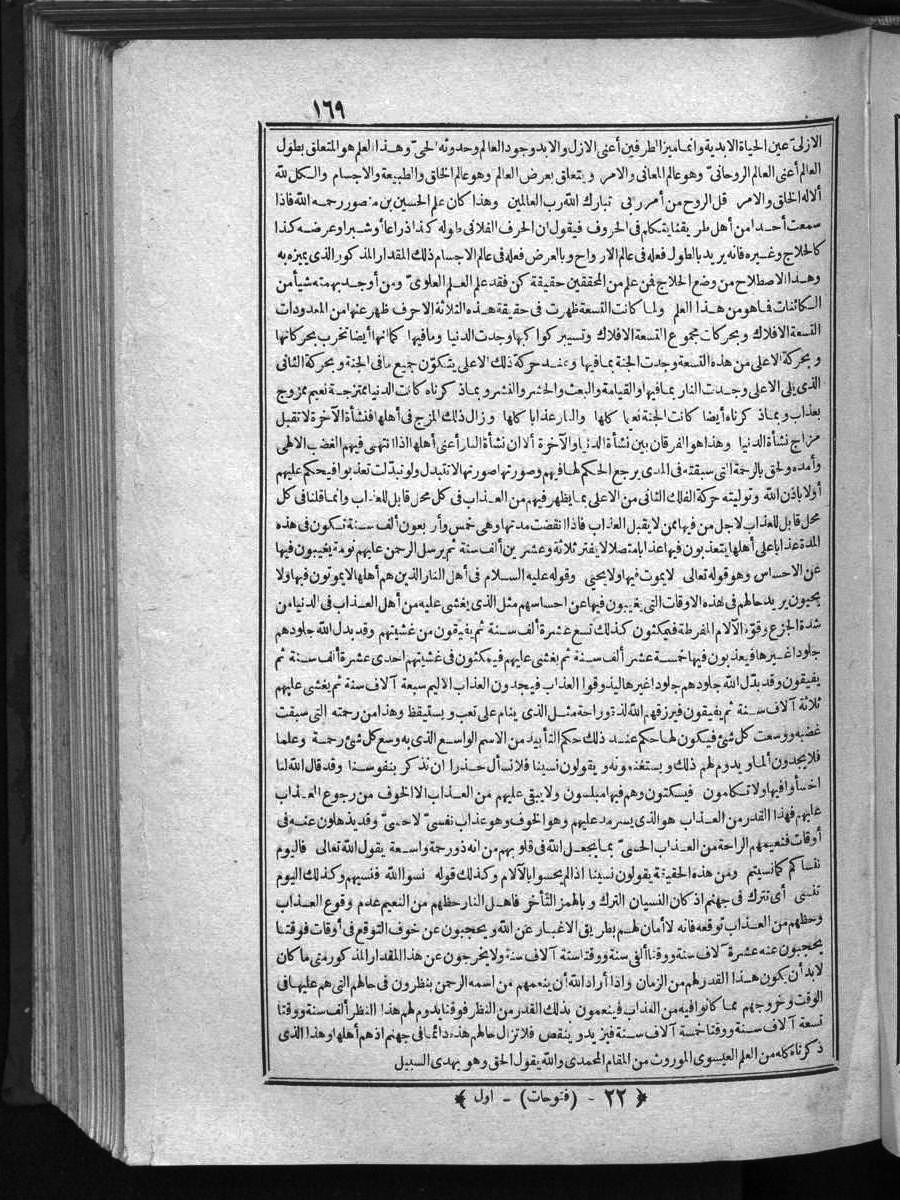 ١٦٩
الازلى عين الحياة الابدية وانما ميز الطرفين أعنى الازل والابد وجود العالم وحدوثه الحىّ وهذا العلم هو المتعلق بطول
العالم أعنى العالم الروحانىّ وهو عالم المعانى والامر ويتعلق بعرض العالم وهو عالم الخلق والطبيعة والاجسام والكل لله
ألا له الخلق والامر قل الروح من أمر ربى تبارك الله رب العالمين وهذا كان علم الحسين بن منصور رحمه الله فاذا
سمعت أحدا من أهل طريقنا يتكلم فى الحروف فيقول ان الحرف الفلانى طوله كذا ذراعا أو شبرا وعرضه كذا
كالحلاج وغيره فانه يريد بالطول فعله فى عالم الارواح وبالعرض فعله فى عالم الاجسام ذلك المقدار المذكور الذى يميزه به
وهذا الاصطلاح من وضع الحلاج فمن علم من المحققين حقيقة كن فقد علم العلم العلوىّ ومن أوجد بهمته شيأ من
الكائنات فما هو من هذا العلم ولما كانت التسعة ظهرت فى حقيقة هذه الثلاثة الاحرف ظهر عنها من المعدودات
التسعة الافلاك وبحركات مجموع التسعة الافلاك وتسيير كواكبها وجدت الدنيا وما فيها كما انها أيضا تخرب بحركاتها
وبحركة الاعلى من هذه التسعة وجدت الجنة بما فيها وعند حركة ذلك الاعلى يتكوّن جميع ما فى الجنة وبحركة الثانى
الذى يلى الاعلى وجدت النار بما فيها والقيامة والبعث والحشر والنشر وبما ذكرناه كانت الدنيا ممتزجة نعيم ممزوج
بعذاب وبما ذكرناه أيضا كانت الجنة نعيما كلها والنار عذابا كلها وزال ذلك المزج فى أهلها فنشأة الآخرة لا تقبل
مزاج نشأة الدنيا وهذا هو الفرقان بين نشأة الدنيا والآخرة ألا ان نشأة النار أعنى أهلها اذا انتهى فيهم الغضب الالهى
وأمده ولحق بالرحمة التى سبقته فى المدى يرجع الحكم لها فيهم وصورتها صورتها لا تتبدل ولو تبدّلت تعذبوا فيحكم عليهم
أولا باذن الله وتوليته حركة الفلك الثانى من الاعلى بما يظهر فيهم من العذاب فى كل محل قابل للعذاب وانما قلنا فى كل
محل قابل للعذاب لاجل من فيها ممن لا يقبل العذاب فاذا انقضت مدتها وهى خمس وأربعون ألف سنة تكون فى هذه
المدة عذابا على أهلها يتعذبون فيها عذابا متصلا لا يفتر ثلاثة وعشرين ألف سنة ثم يرسل الرحمن عليهم نومة يغيبون فيها
عن الاحساس وهو قوله تعالى لا يموت فيها ولا يحيى وقوله عليه السلام فى أهل النار الذين هم أهلها لا يموتون فيها ولا
يحيون يريد حالهم فى هذه الاوقات التى يغيبون فيها عن احساسهم مثل الذى يغشى عليه من أهل العذاب فى الدنيا من
شدة الجزع وقوّة الآلام المفرطة فيمكثون كذلك تسع عشرة ألف سنة ثم يفيقون من غشيتهم وقد بدل الله جلودهم
جلودا غيرها فيعذبون فيها خمسة عشر ألف سنة ثم يغشى عليهم فيمكثون فى غشيتهم احدى عشرة ألف سنة ثم
يفيقون وقد بدّل الله جلودهم جلودا غيرها ليذوقوا العذاب فيجدون العذاب الاليم سبعة آلاف سنة ثم يغشى عليهم
ثلاثة آلاف سنة ثم يفيقون فيرزقهم الله لذة وراحة مثل الذى ينام على تعب ويستيقظ وهذا من رحمته التى سبقت
غضبه ووسعت كل شئ فيكون لها حكم عند ذلك حكم التأبيد من الاسم الواسع الذى به وسع كل شئ رحمة وعلما
فلا يجدون ألما ويدوم لهم ذلك ويستغنمونه ويقولون نسينا فلا نسأل حذرا ان نذكر بنفوسنا وقد قال الله لنا
اخسأوا فيها ولا تكلمون فيسكتون وهم فيها مبلسون ولا يبقى عليهم من العذاب الا الخوف من رجوع العذاب
عليهم فهذا القدر من العذاب هو الذى يسرمد عليهم وهو الخوف وهو عذاب نفسىّ لا حسىّ وقد يذهلون عنه فى
أوقات فنعيمهم الراحة من العذاب الحسىّ بما يجعل الله فى قلوبهم من انه ذو رحمة واسعة يقول الله تعالى فاليوم
ننساكم كما نسيتم ومن هذه الحقيقة يقولون نسينا اذا لم يحسوا بالآلام وكذلك قوله نسوا الله فنسيهم وكذلك اليوم
تنسى أى تترك فى جهنم اذ كان النسيان الترك وبالهمز التأخر فاهل النار حظهم من النعيم عدم وقوع العذاب
وحظهم من العذاب توقعه فانه لا أمان لهم بطريق الاخبار عن الله ويحجبون عن خوف التوقع فى أوقات فوقتا
يحجبون عنه عشرة آلاف سنة ووقتا ألفى سنة ووقتا ستة آلاف سنة ولا يخرجون عن هذا المقدار المذكور متى ما كان
لابد أن يكون هذا القدر لهم من الزمان واذا أراد الله أن ينعمهم من اسمه الرحمن ينظرون فى حالهم التى هم عليها فى
الوقت وخروجهم مما كانوا فيه من العذاب فينعمون بذلك القدر من النظر فوقتا يدوم لهم هذا النظر ألف سنة ووقتا
تسعة آلاف سنة ووقتا خمسة آلاف سنة فيزيد وينقص فلا تزال حالهم هذه دائما فى جهنم اذ هم أهلها وهذا الذى
ذكرناه كله من العلم العيسوى الموروث من المقام المحمدى والله يقول الحق وهو يهدى السبيل
﴿ ٢٢ - (فتوحات) - اول ﴾